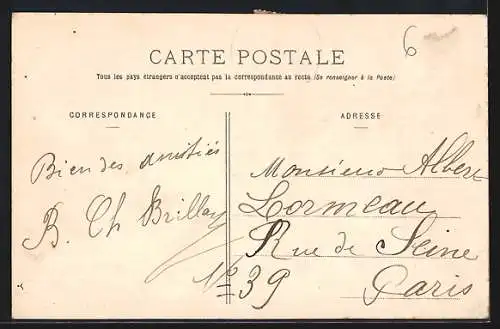 6
CARTE POSTALE
Tous les pays étrangers n'acceptent pas la correspondance au recto (Se renseigner à la Poste)
CORRESPONDANCE
Bien des amitiés
B. Ch Brillay
ADRESSE
Monsieur Albert
Lormeau
Rue de Seine
No 39
Paris